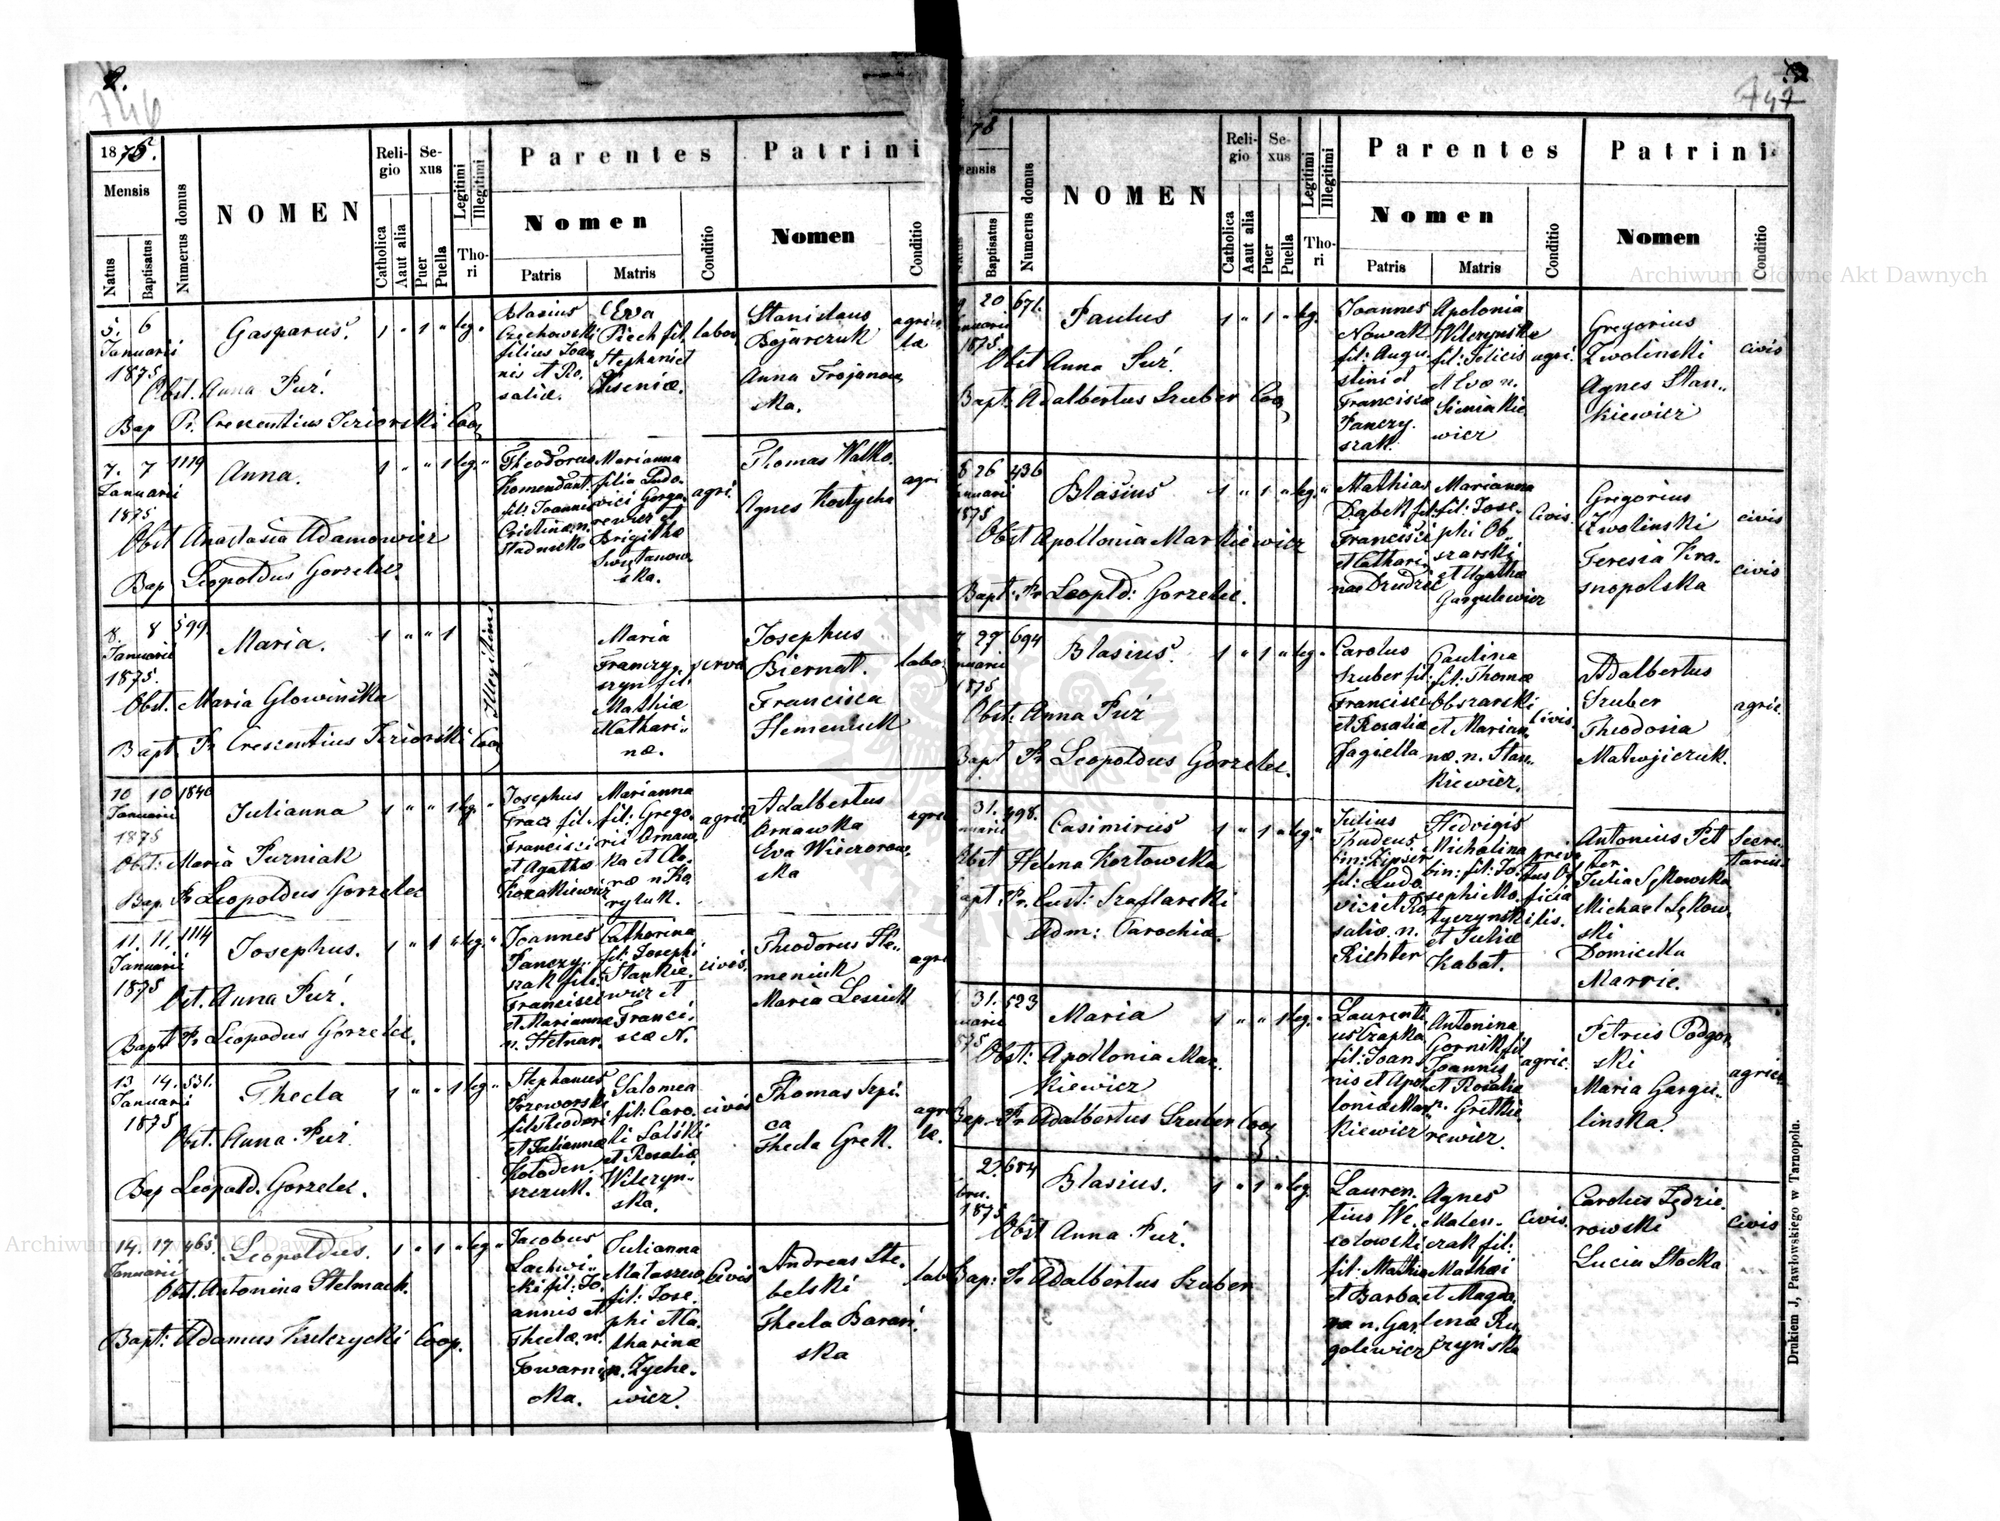 2.
746
1875.
Mensis
Natus
Baptisatus
Numerus domus
NOMEN
Religio
Catholica
Aaut alia
Sexus
Puer
Puella
Legitimi
Illegitimi
Thori
Parentes
Nomen
Patris
Matris
Conditio
Patrini
Nomen
Conditio
5. 6
Januarii
1875
Gasparus.
1 " 1 " leg.
Obst. Anna Puź.
Bap Pr. Crescentius Jeziorski Coop
Blasius
Czechowski
filius Joan
nis et Ro.
saliæ.
Eva
Piech fil.
Stephani et
Xseniæ.
labor
Stanislaus
Bojarczuk
Anna Trojanow
ska.
agrico
la
7. 7 1119
Januarii
1875
Anna.
1 " " 1 leg. "
Obst Anastasia Adamowicz
Bap Leopoldus Gorzelec.
Theodorus
Komendant.
fil: Joannis
Cristinæ n.
Stadnicka
Marianna
filia Ludo.
vici Gorgo.
rewicz et
Brigithæ
Swiętanow
ska.
agri.
Thomas Walko.
Agnes Kostycka
agri
8. 8 599.
Januarii
1875.
Maria.
1 " " 1
Illegitimi
Obst. Maria Glowińska
Bapt Pr Crescentius Jeziorski Coop
Maria
Franczy.
szyn fil.
Mathiæ
et Kathari..
næ.
serva
Josephus
Biernat.
Francisca
Hemeniuk
labor
10 10 1840
Januarii
1875
Julianna
1 " " 1 leg. "
Obst: Maria Purniak
Bap. Pr Leopoldus Gorzelec
Josephus
Tracz fil.
Francisci
et Agatha
Kozakiewicz
Marianna
fil: Grego.
rii Arnaw.
ka et Cla.
ræ n Ko.
rytuk.
agric.
Adalbertus
Arnawka
Eva Wieczorow.
ska
agri
11. 11. 1114
Januarii
1875
Josephus.
1 " 1 " leg. "
Obst. Anna Puź.
Bapt Pr Leopodus Gorzelec.
Joannes
Panczy..
szak fil:
Francisci
et Mariannæ
n. Helnar.
Catherina
fil: Josephi
Stankie.
wicz et
Franci.
scæ N.
civis.
Theodorus He..
meniuk
Maria Lesiuk
agri
13 14. 531.
Januarii
1875
Thecla
1 " " 1 leg "
Obst. Anna Puź
Bap Leopold. Gorzelec.
Stephanus
Przeworski
fil: Teodori
et Juliannæ
Kołoden.
szczuk.
Salomea
fil: Caro.
li Solski
et Rosaliæ
Wilczyń.
ska.
civis
Thomas Szpi.
ca
Thecla Grek.
agrico
læ.
14. 17. 465.
Januarii
Leopoldus.
1 " 1 " leg "
Obst. Antonina Stelmach.
Bapt: Adamus Kulczycki Coop.
Jacobus
Lachwi..
cki fil: Jo.
annis et
Theclæ n.
Towarni
cka.
Julianna
Mataszew
fil: Jose.
phi et Ca.
tharinæ
n. Zyche.
wicz.
Civis
Andreas Ste.
belski
Thecla Barań.
ska
lab
747
75
Mensis
Natus
Baptisatus
Numerus domus
NOMEN
Religio
Catholica
Aaut alia
Sexus
Puer
Puella
Legitimi
Illegitimi
Thori
Parentes
Nomen
Patris
Matris
Conditio
Patrini
Nomen
Conditio
20 671.
1875.
Paulus
1 " 1 " leg.
Obst Anna Puź.
Bapt: Adalbertus Szuber Coop
Joannes
Nowak
fil: Augu.
stini et
Franciscæ
Panczy.
szak.
Apolonia
Wilczynska
fil: Felicis
et Evæ n.
Sieniakie
wicz
agri.
Gregorius
Zwolinski
Agnes Stan..
kiewicz
civis
26 436
1875
Blasius
1 " 1 " leg. "
Obst Apollonia Markiewicz
Bapt: Pr Leopld: Gorzelec.
Mathias
Dąbek fil:
Francisci
et Cathari.
næ Drudzic
Marianna
fil: Jose.
phi Ob..
szarski
et Agathæ
Gargulewicz
Civis
Gregorius
Zwolinski
Teresia Kra.
snopolska
civis
civis
27 694
1875
Blasius.
1 " 1 " leg "
Obst: Anna Puź
Bapt Pr Leopoldus Gorzelec.
Carolus
Szuber fil:
Francisci
et Rosaliæ
Jagiella
Paulina
fil: Thomæ
Obszarski
et Marian.
næ. n. Stan..
kiewicz.
Civis.
Adalbertus
Szuber
Theodosia
Matwijczuk.
agric.
31. 498.
Casimirus
1 " 1 " leg "
Obst Helena Kozłowska
Bapt Pr. Eust: Szaflarski
Adm: Parochiæ.
Julius
Thadeus
bin: Zipser
fil: Ludo.
vici et Ro
saliæ. n.
Richter
Hedvigis
Michalina
bin: fil: Jo.
sephi Mo.
tyczynski
et Juliæ
Kabat.
priva
tus Of
ficia
lis.
Antonius Pet
ter
Julia Sękowska
Michael Sękow.
ski
Domicella
Marrie.
Secre.
tarius
31. 523
Maria
1 " " 1 leg. "
Obst: Apollonia Mar.
kiewicz
Bap. Pr Adalbertus Szuber Coop
Laurenti
us Czapka
fil: Joan
nis et Apol
loniæ Mar
kiewicz
Antonina
Gornik fil
Joannis
et Rosaliæ
n. Gretkie
rewicz.
agric.
Petrus Podgor
ski
Maria Gargu.
linska.
agric
2. 684
1875.
Blasius.
1 " 1 " leg.
Obst Anna Puź.
Bap: Pr Adalbertus Szuber
Lauren.
tius We.
sołowski
fil: Mathiæ
et Barba.
ræ n. Gar.
golewicz
Agnes
Maten..
czak fil:
Mathæi
et Magda.
lenæ Ru.
czyńska
Civis.
Carolus Lędzie
rowski
Lucia Stocka
Civis
Drukiem J, Pawłowskiego w Tarnopolu.
Archiwum Główne Akt Dawnych
Archiwum Główne Akt Dawnych